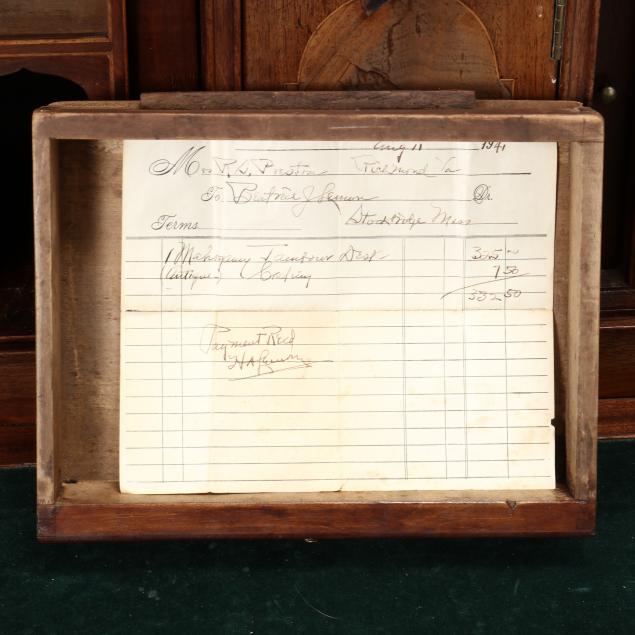 Aug 11 1941
Mrs R. S. Preston Richmond Va
To Beatrice J Lemon Dr.
Stockbridge Mass
Terms
1 Mahogany Tambour Desk 325 –
(Antique) Crating 7 50
332 50
Payment Recd